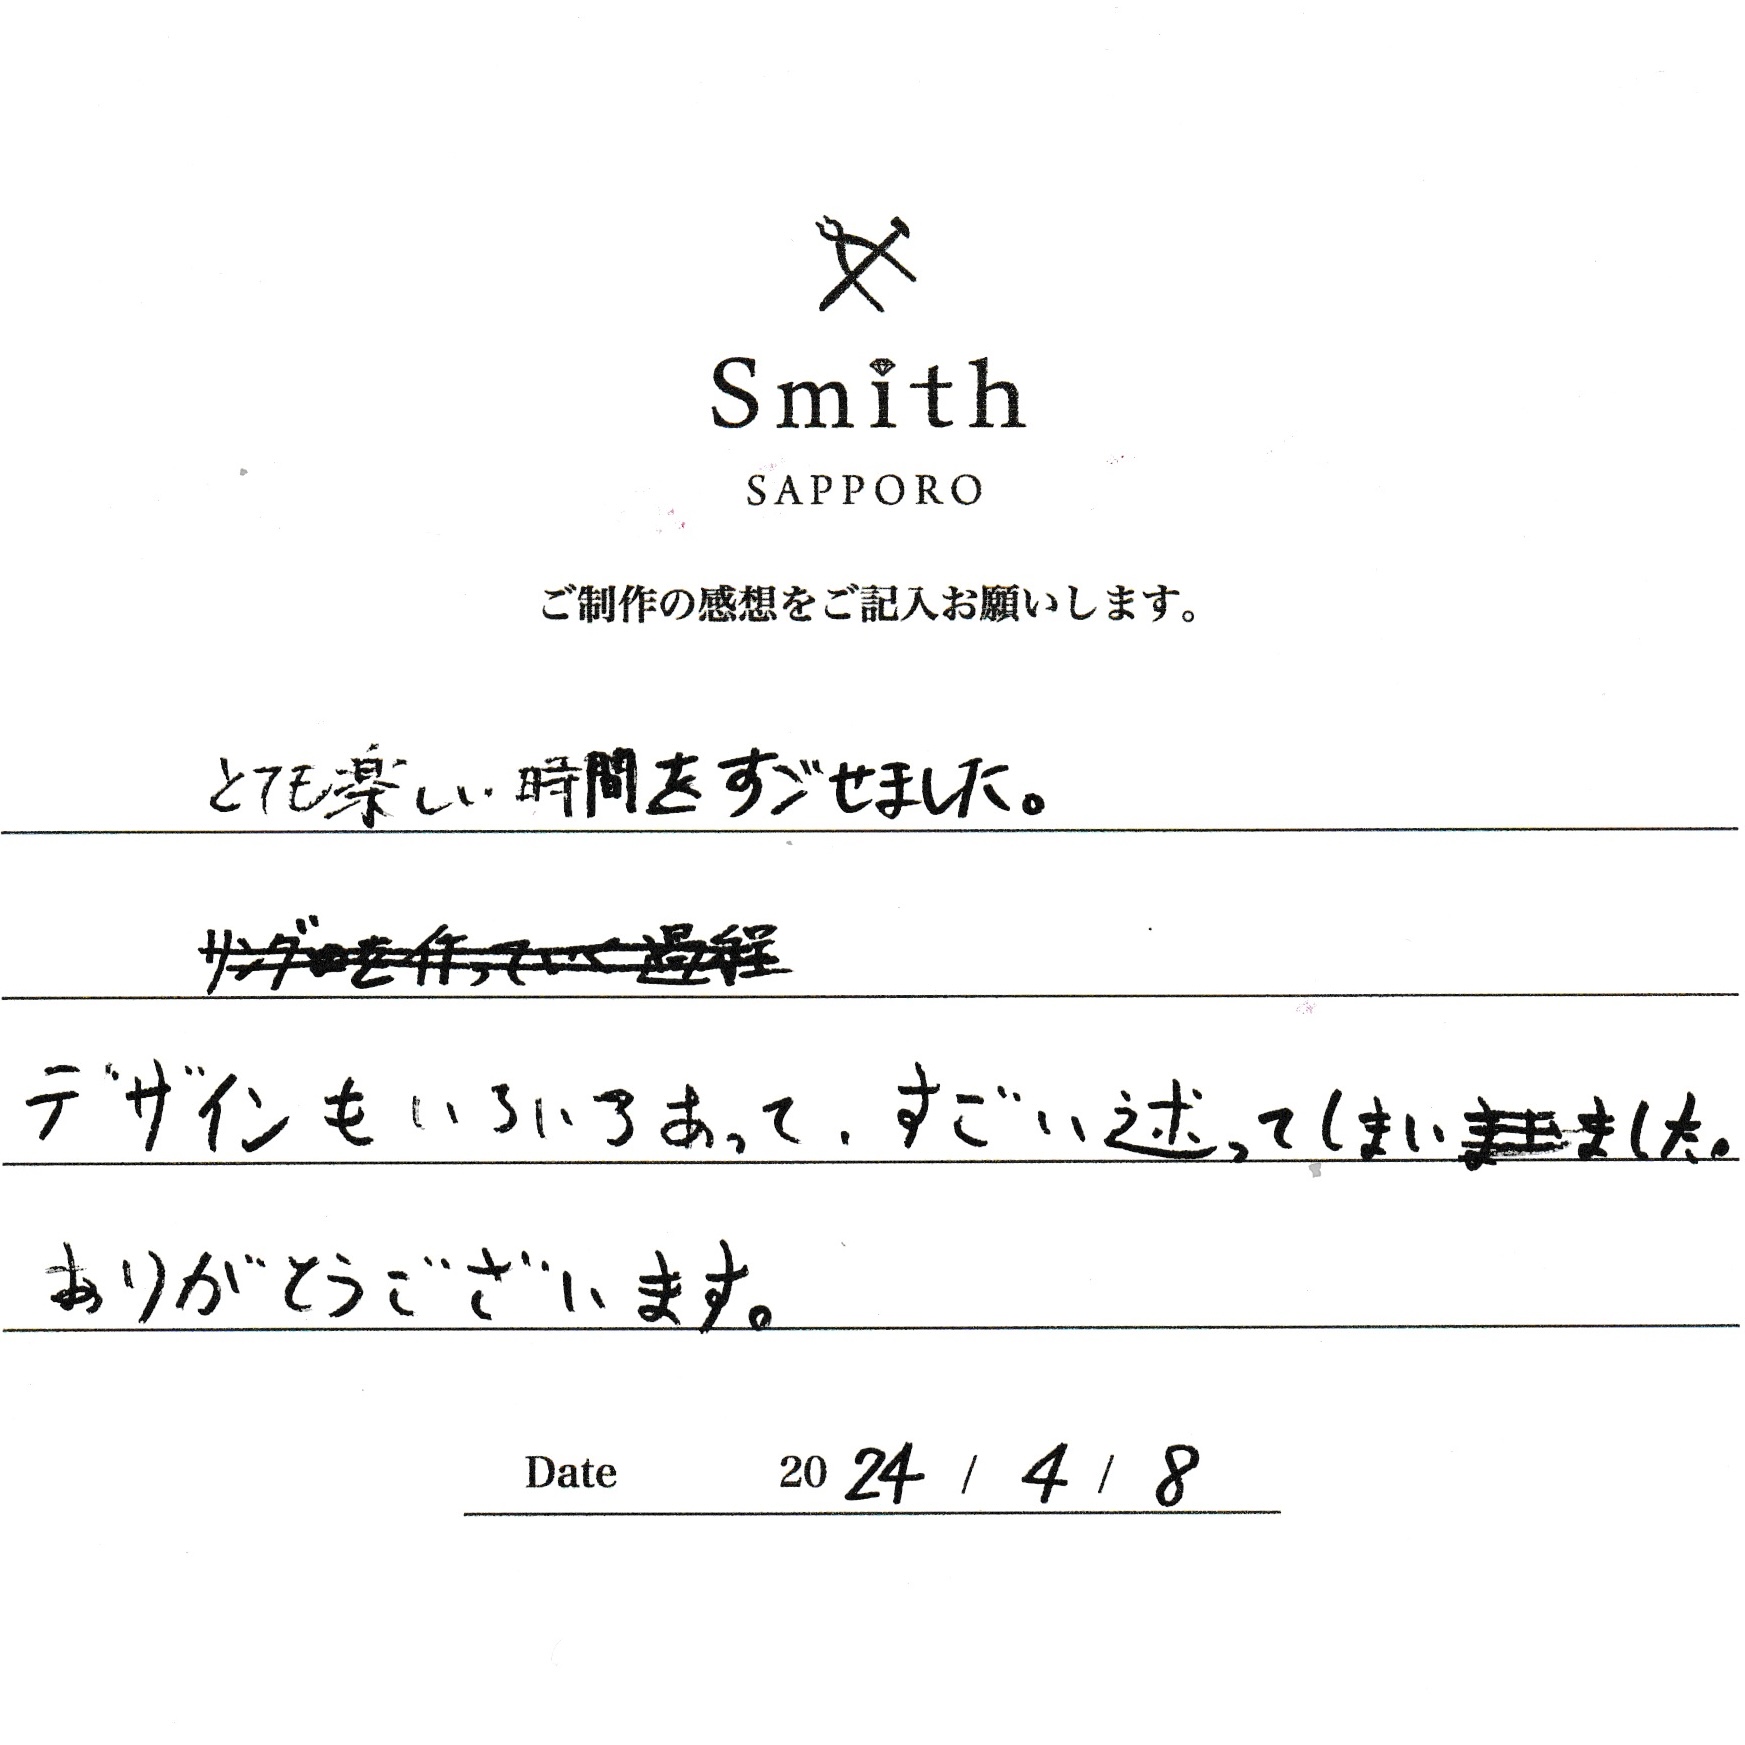 Smith
SAPPORO
ご制作の感想をご記入お願いします。
とても楽しい時間をすごせました。
デザインもいろいろあって、すごい述ってしまいました。
ありがとうございます。
Date 2024 / 4 / 8